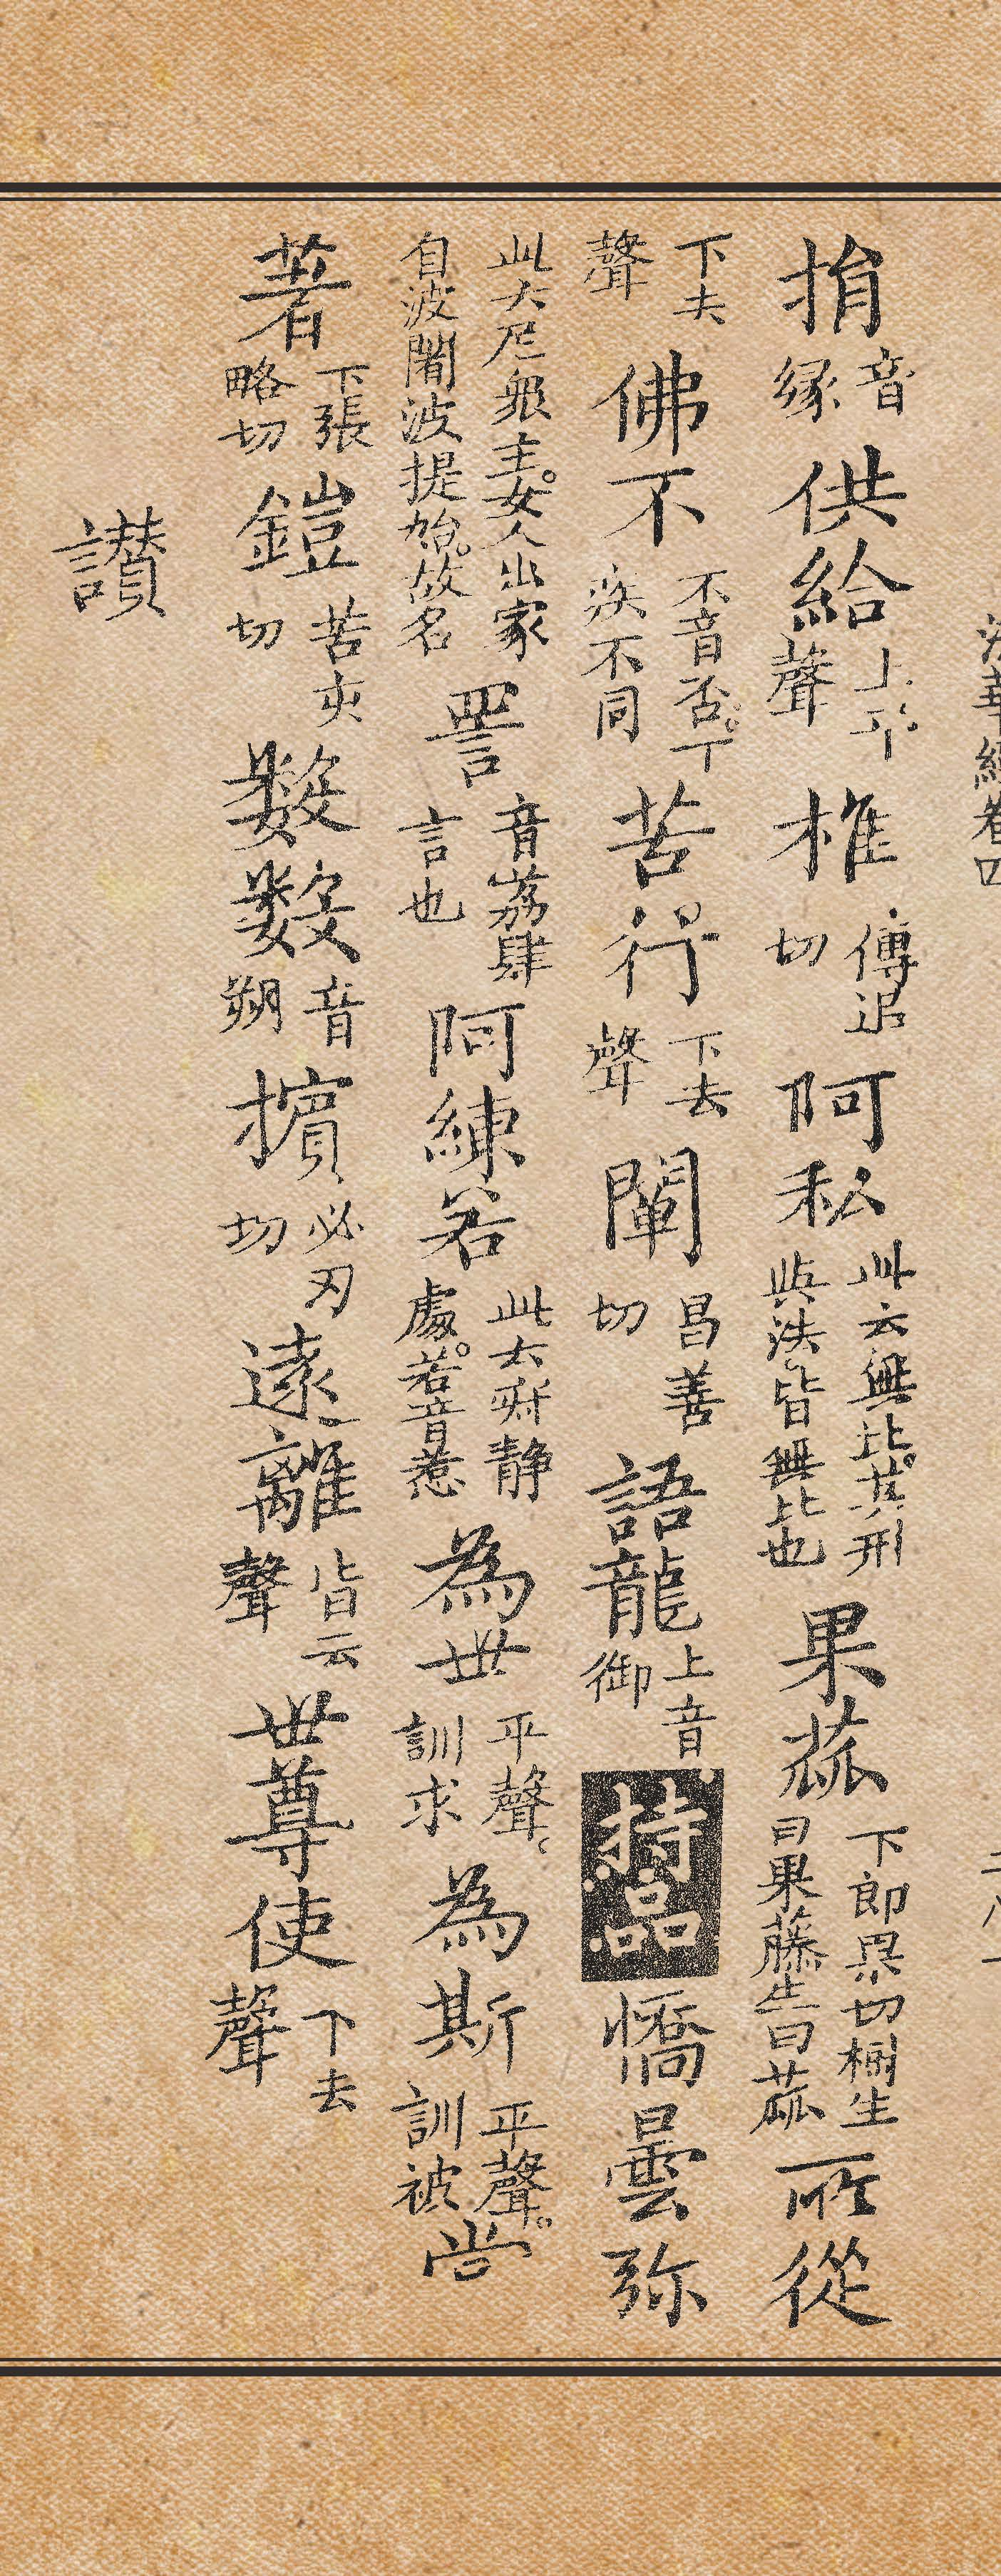 法華經卷四
捐音緣供給上平聲椎傳追切阿私此云無比其形與法皆無比也果蓏下郎果切樹生曰果藤生曰蓏所從
下去聲佛不不音否下疾不同苦行下去聲闡昌善切語龍上音御持品憍曇弥
此大尼眾主女人出家自波闍波提始故名詈音荔肆言也阿練若此云寂靜處若音惹為世平聲訓求為斯平聲訓被尚
著下張略切鎧苦亥切數數音朔擯必刃切遠離皆去聲世尊使下去聲
讚